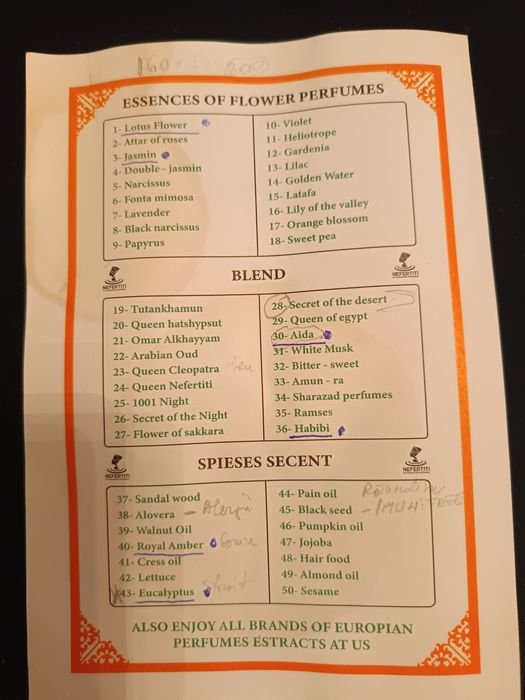 160 x 5 = 800
ESSENCES OF FLOWER PERFUMES
1- Lotus Flower
2- Attar of roses
3- Jasmin
4- Double - jasmin
5- Narcissus
6- Fonta mimosa
7- Lavender
8- Black narcissus
9- Papyrus
10- Violet
11- Heliotrope
12- Gardenia
13- Lilac
14- Golden Water
15- Latafa
16- Lily of the valley
17- Orange blossom
18- Sweet pea
NEFERTITI
BLEND
NEFERTITI
19- Tutankhamun
20- Queen hatshypsut
21- Omar Alkhayyam
22- Arabian Oud
23- Queen Cleopatra
24- Queen Nefertiti
25- 1001 Night
26- Secret of the Night
27- Flower of sakkara
28- Secret of the desert
29- Queen of egypt
30- Aida
31- White Musk
32- Bitter - sweet
33- Amun - ra
34- Sharazad perfumes
35- Ramses
36- Habibi
NEFERTITI
SPIESES SECENT
NEFERTITI
37- Sandal wood
38- Alovera - Alergii
39- Walnut Oil
40- Royal Amber
41- Cress oil
42- Lettuce
43- Eucalyptus
44- Pain oil
45- Black seed - IMUNITETE
46- Pumpkin oil
47- Jojoba
48- Hair food
49- Almond oil
50- Sesame
ALSO ENJOY ALL BRANDS OF EUROPIAN
PERFUMES ESTRACTS AT US